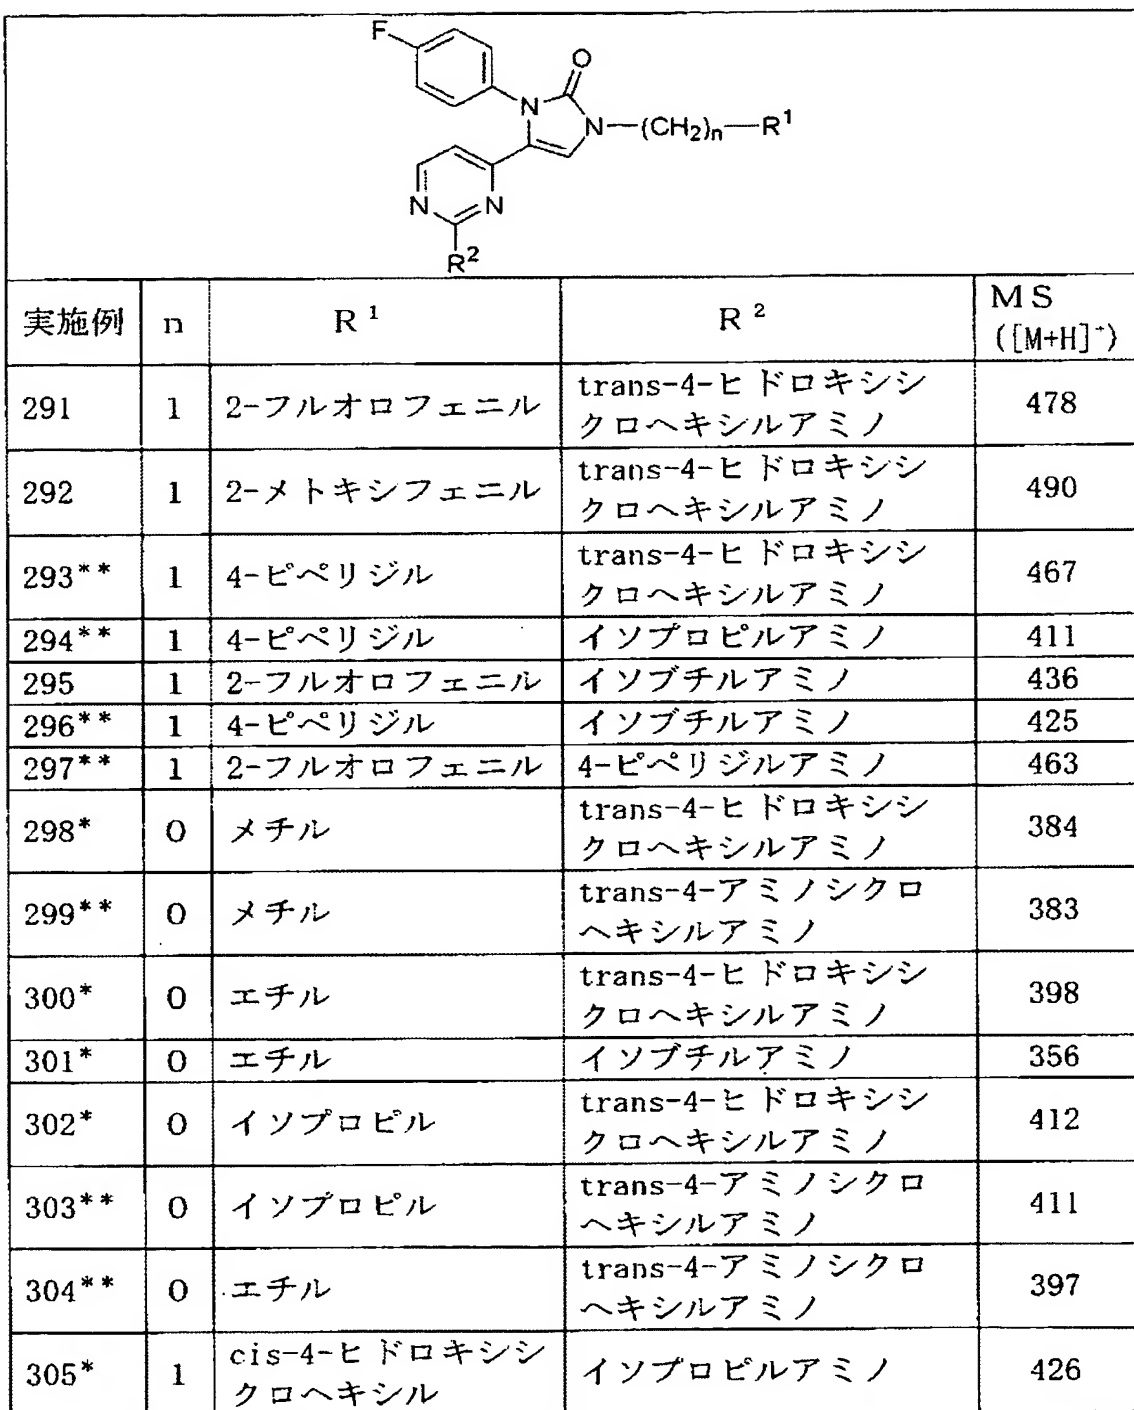 F
O
N
N—(CH₂)ₙ—R¹
N
N
R²
実施例 n R¹ R² MS
([M+H]⁺)
291 1 2-フルオロフェニル trans-4-ヒドロキシシ
クロヘキシルアミノ 478
292 1 2-メトキシフェニル trans-4-ヒドロキシシ
クロヘキシルアミノ 490
293** 1 4-ピペリジル trans-4-ヒドロキシシ
クロヘキシルアミノ 467
294** 1 4-ピペリジル イソプロピルアミノ 411
295 1 2-フルオロフェニル イソブチルアミノ 436
296** 1 4-ピペリジル イソブチルアミノ 425
297** 1 2-フルオロフェニル 4-ピペリジルアミノ 463
298* 0 メチル trans-4-ヒドロキシシ
クロヘキシルアミノ 384
299** 0 メチル trans-4-アミノシクロ
ヘキシルアミノ 383
300* 0 エチル trans-4-ヒドロキシシ
クロヘキシルアミノ 398
301* 0 エチル イソブチルアミノ 356
302* 0 イソプロピル trans-4-ヒドロキシシ
クロヘキシルアミノ 412
303** 0 イソプロピル trans-4-アミノシクロ
ヘキシルアミノ 411
304** 0 エチル trans-4-アミノシクロ
ヘキシルアミノ 397
305* 1 cis-4-ヒドロキシシ
クロヘキシル イソプロピルアミノ 426